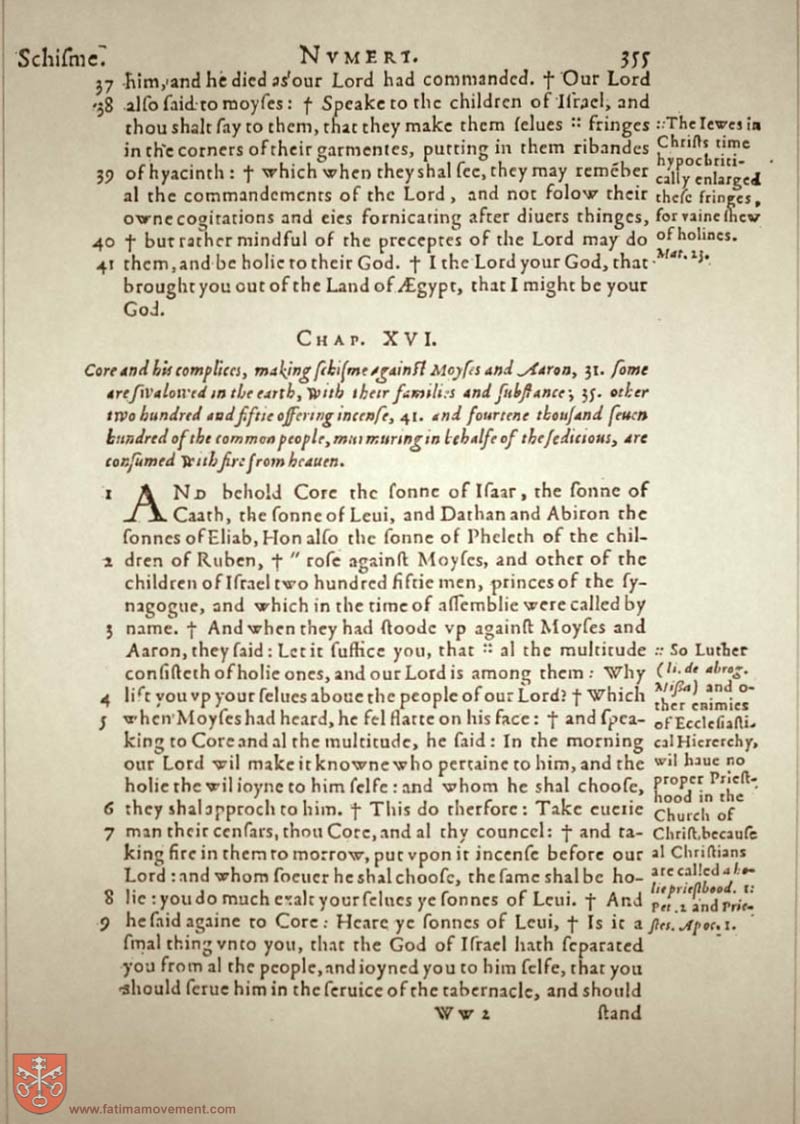 Schiſme. NVMERI. 355
37 him, and he died as our Lord had commanded. † Our Lord
38 alſo ſaid to moyſes: † Speake to the children of Iſrael, and
thou shalt ſay to them, that they make them ſelues :: fringes
in the corners of their garmentes, putting in them ribandes
39 of hyacinth: † which when they shal ſee, they may remẽber
al the commandements of the Lord, and not folow their
owne cogitations and eies fornicating after diuers thinges,
40 † but rather mindful of the preceptes of the Lord may do
41 them, and be holie to their God. † I the Lord your God, that
brought you out of the Land of Ægypt, that I might be your
God.
:: The Iewes in
Chriſts time
hypochriti-
cally enlarged
theſe fringes,
for vaine shew
of holines.
Mat. 23.
CHAP. XVI.
Core and his complices, making ſchiſme againſt Moyſes and Aaron, 31. ſome
are ſwalowed in the earth, with their families and ſubſtance; 35. other
two hundred and fiftie offering incenſe, 41. and fourtene thouſand ſeuen
hundred of the common people, murmuring in behalfe of the ſedicious, are
conſumed with fire from heauen.
1 AND behold Core the ſonne of Iſaar, the ſonne of
Caath, the ſonne of Leui, and Dathan and Abiron the
ſonnes of Eliab, Hon alſo the ſonne of Pheleth of the chil-
2 dren of Ruben, † " roſe againſt Moyſes, and other of the
children of Iſrael two hundred fiftie men, princes of the ſy-
nagogue, and which in the time of aſſemblie were called by
3 name. † And when they had ſtoode vp againſt Moyſes and
Aaron, they ſaid: Let it ſuffice you, that :: al the multitude
conſiſteth of holie ones, and our Lord is among them: Why
4 lift you vp your ſelues aboue the people of our Lord? † Which
5 when Moyſes had heard, he fel flatte on his face: † and ſpea-
king to Core and al the multitude, he ſaid: In the morning
our Lord wil make it knowne who pertaine to him, and the
holie the wil ioyne to him ſelfe: and whom he shal chooſe,
6 they shal approch to him. † This do therfore: Take euerie
7 man their cenſars, thou Core, and al thy councel: † and ta-
king fire in them to morrow, put vpon it incenſe before our
Lord: and whom ſoeuer he shal chooſe, the ſame shal be ho-
8 lie: you do much exalt your ſelues ye ſonnes of Leui. † And
9 he ſaid againe to Core: Heare ye ſonnes of Leui, † Is it a
ſmal thing vnto you, that the God of Iſrael hath ſeparated
you from al the people, and ioyned you to him ſelfe, that you
should ſerue him in the ſeruice of the tabernacle, and should
:: So Luther
(li. de abrog.
Miſſa) and o-
ther enimies
of Eccleſiaſti-
cal Hiererchy,
wil haue no
proper Prieſt-
hood in the
Church of
Chriſt, becauſe
al Chriſtians
are called a ho-
lie prieſthood. 1.
Pet. 2 and Prie-
ſtes. Apoc. 1.
Ww 2 ſtand
www.fatimamovement.com